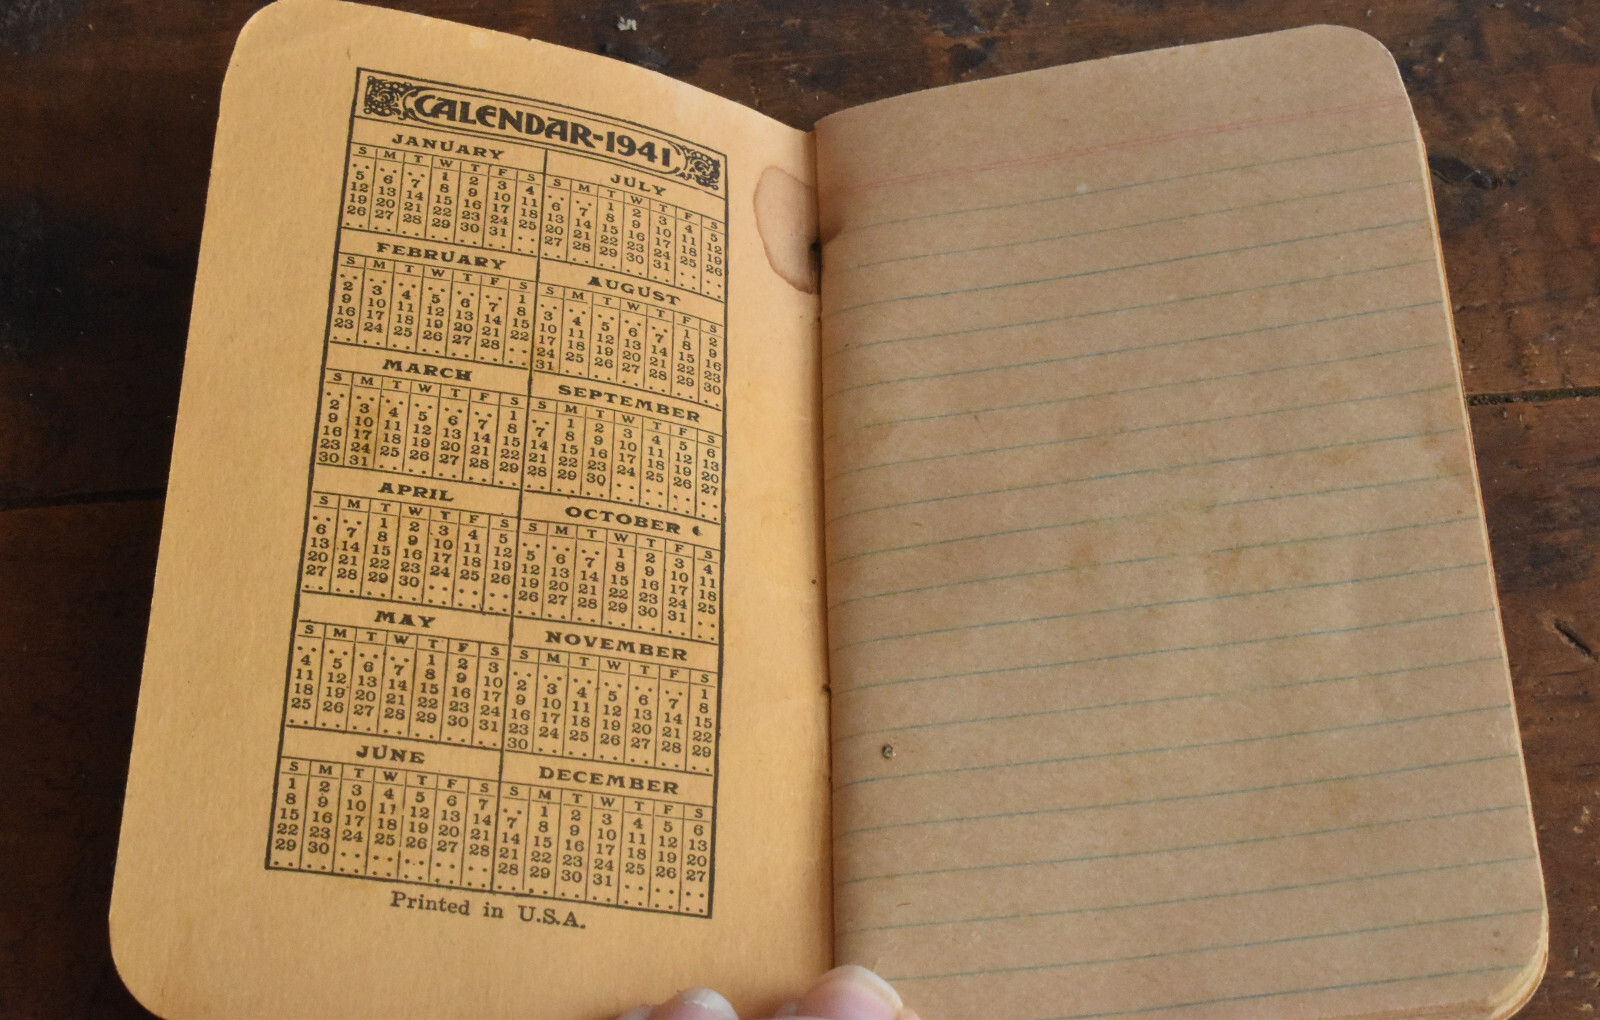 CALENDAR-1941
JANUARY
S M T W T F S
1 2 3 4
5 6 7 8 9 10 11
12 13 14 15 16 17 18
19 20 21 22 23 24 25
26 27 28 29 30 31
FEBRUARY
S M T W T F S
1
2 3 4 5 6 7 8
9 10 11 12 13 14 15
16 17 18 19 20 21 22
23 24 25 26 27 28
MARCH
S M T W T F S
1
2 3 4 5 6 7 8
9 10 11 12 13 14 15
16 17 18 19 20 21 22
23 24 25 26 27 28 29
30 31
APRIL
S M T W T F S
1 2 3 4 5
6 7 8 9 10 11 12
13 14 15 16 17 18 19
20 21 22 23 24 25 26
27 28 29 30
MAY
S M T W T F S
1 2 3
4 5 6 7 8 9 10
11 12 13 14 15 16 17
18 19 20 21 22 23 24
25 26 27 28 29 30 31
JUNE
S M T W T F S
1 2 3 4 5 6 7
8 9 10 11 12 13 14
15 16 17 18 19 20 21
22 23 24 25 26 27 28
29 30
JULY
S M T W T F S
1 2 3 4 5
6 7 8 9 10 11 12
13 14 15 16 17 18 19
20 21 22 23 24 25 26
27 28 29 30 31
AUGUST
S M T W T F S
1 2
3 4 5 6 7 8 9
10 11 12 13 14 15 16
17 18 19 20 21 22 23
24 25 26 27 28 29 30
31
SEPTEMBER
S M T W T F S
1 2 3 4 5 6
7 8 9 10 11 12 13
14 15 16 17 18 19 20
21 22 23 24 25 26 27
28 29 30
OCTOBER
S M T W T F S
1 2 3 4
5 6 7 8 9 10 11
12 13 14 15 16 17 18
19 20 21 22 23 24 25
26 27 28 29 30 31
NOVEMBER
S M T W T F S
1
2 3 4 5 6 7 8
9 10 11 12 13 14 15
16 17 18 19 20 21 22
23 24 25 26 27 28 29
30
DECEMBER
S M T W T F S
1 2 3 4 5 6
7 8 9 10 11 12 13
14 15 16 17 18 19 20
21 22 23 24 25 26 27
28 29 30 31
Printed in U.S.A.